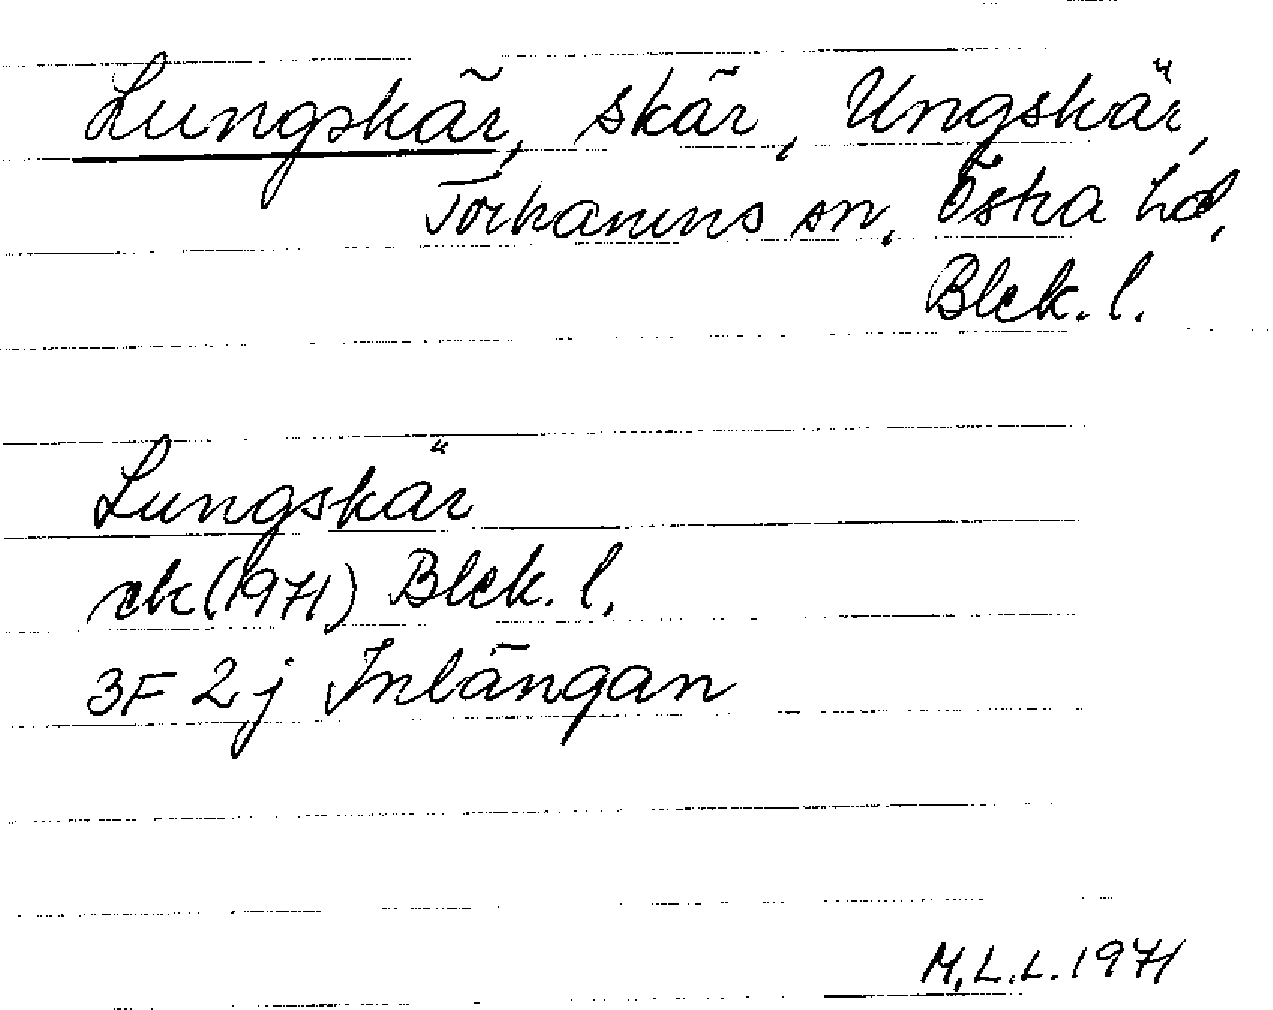 Lungskär, skär, Ungskär,
Torhamns sn, Östra hd,
Blek. l.
Lungskär
ek (1971) Blek. l.
3F 2j Inlängan
M.L.L. 1971